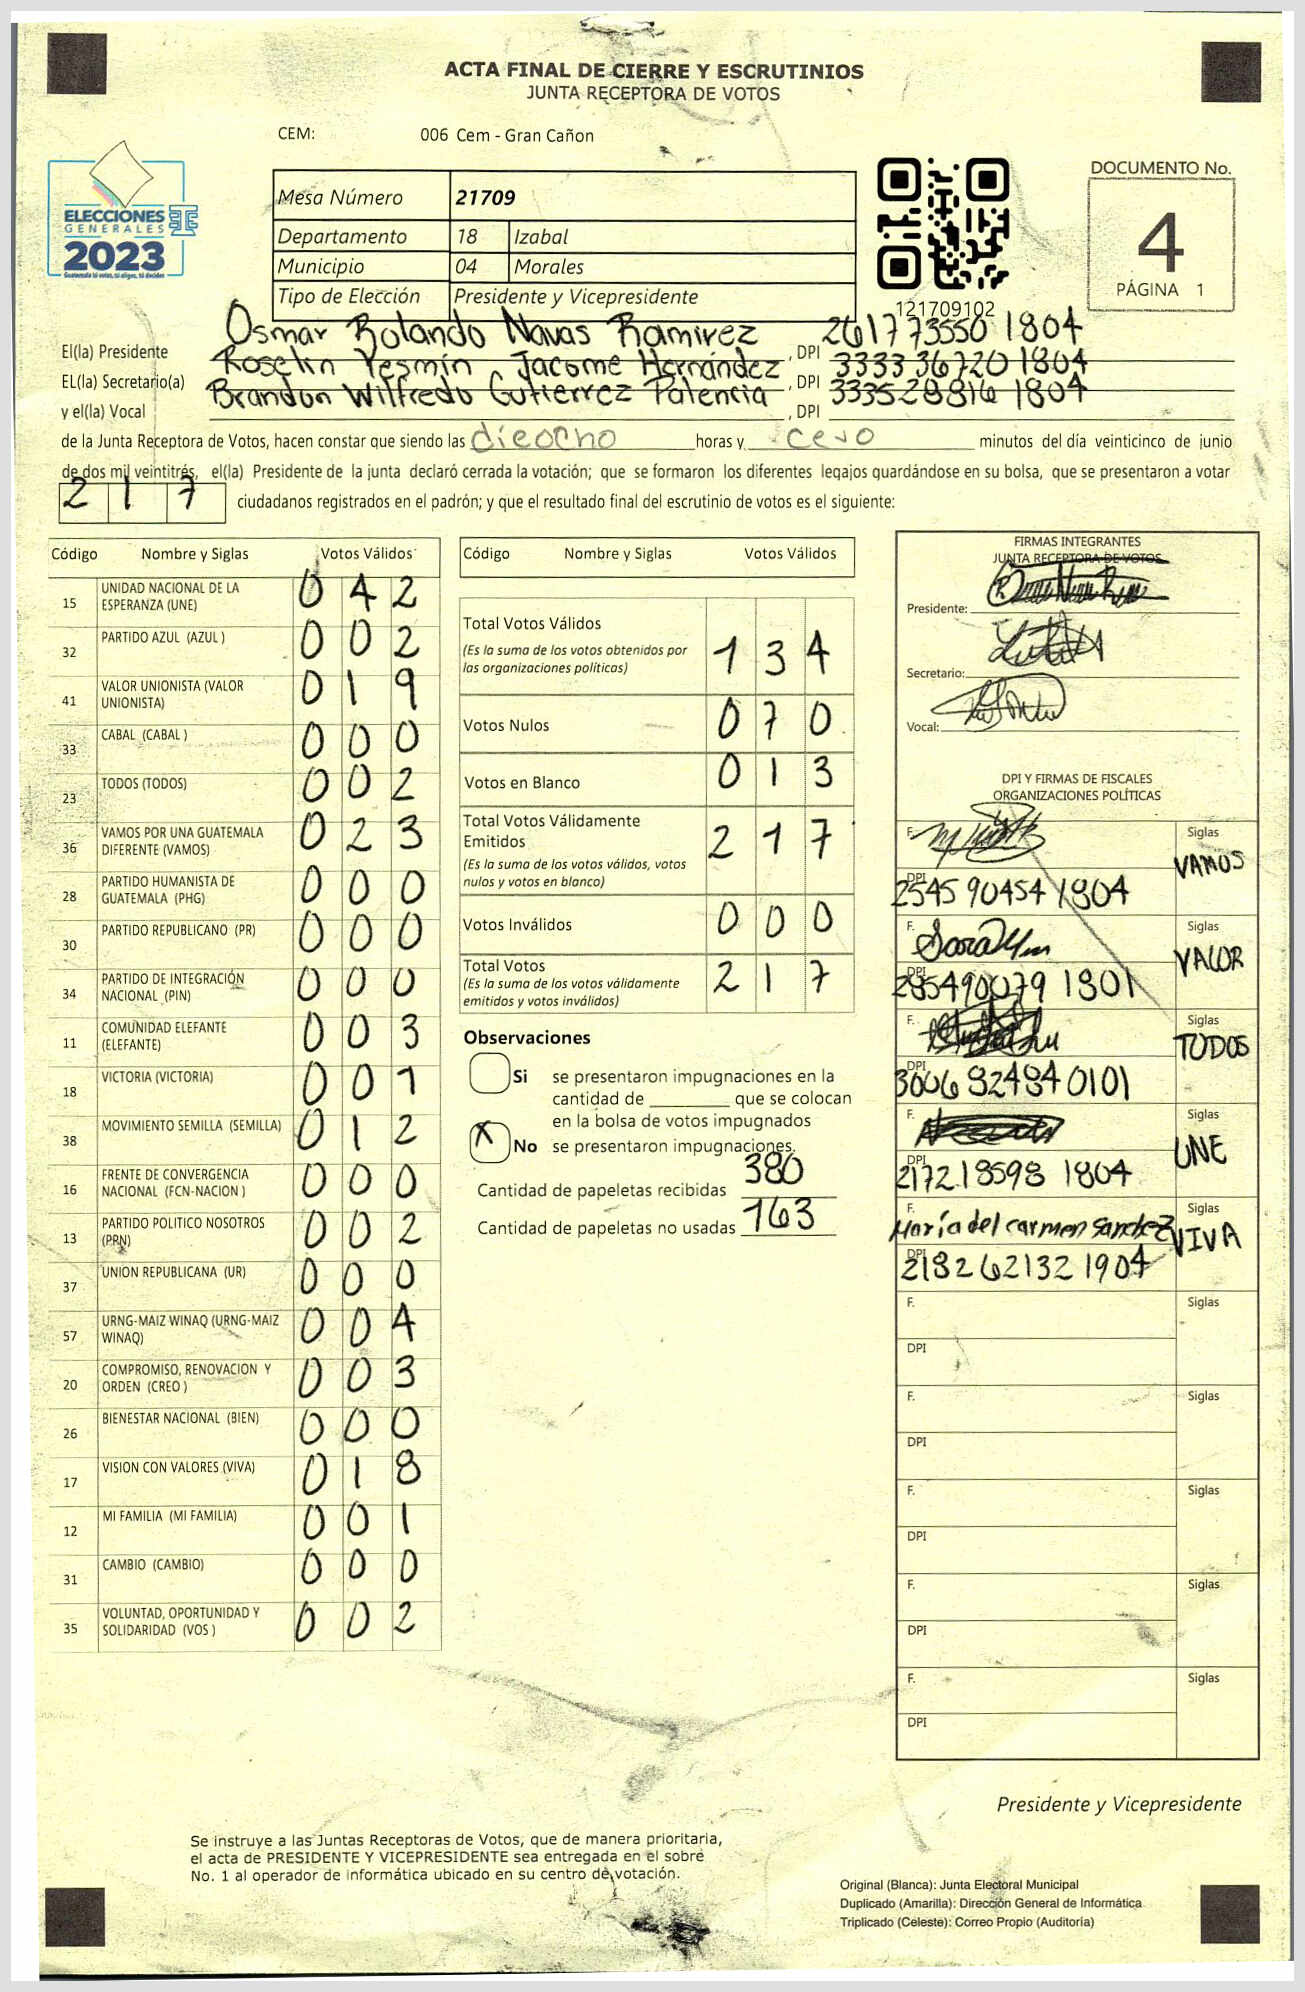 ACTA FINAL DE CIERRE Y ESCRUTINIOS
JUNTA RECEPTORA DE VOTOS
CEM: 006 Cem - Gran Cañon
ELECCIONES
GENERALES
2023
Guatemala tú votas, tú eliges, tú decides
Mesa Número 21709
Departamento 18 Izabal
Municipio 04 Morales
Tipo de Elección Presidente y Vicepresidente
121709102
DOCUMENTO No.
4
PÁGINA 1
El(la) Presidente Osmar Rolando Navas Ramirez , DPI 261773550 1804
EL(la) Secretario(a) Roselin Yesmín Jacome Hernández , DPI 333336720 1804
y el(la) Vocal Brandon Wilfredo Gutierrez Palencia , DPI 333528816 1804
de la Junta Receptora de Votos, hacen constar que siendo las dieocho horas y cero minutos del día veinticinco de junio
de dos mil veintitrés, el(la) Presidente de la junta declaró cerrada la votación; que se formaron los diferentes legajos guardándose en su bolsa, que se presentaron a votar
217 ciudadanos registrados en el padrón; y que el resultado final del escrutinio de votos es el siguiente:
Código Nombre y Siglas Votos Válidos
15 UNIDAD NACIONAL DE LA ESPERANZA (UNE) 0 4 2
32 PARTIDO AZUL (AZUL ) 0 0 2
41 VALOR UNIONISTA (VALOR UNIONISTA) 0 1 9
33 CABAL (CABAL ) 0 0 0
23 TODOS (TODOS) 0 0 2
36 VAMOS POR UNA GUATEMALA DIFERENTE (VAMOS) 0 2 3
28 PARTIDO HUMANISTA DE GUATEMALA (PHG) 0 0 0
30 PARTIDO REPUBLICANO (PR) 0 0 0
34 PARTIDO DE INTEGRACIÓN NACIONAL (PIN) 0 0 0
11 COMUNIDAD ELEFANTE (ELEFANTE) 0 0 3
18 VICTORIA (VICTORIA) 0 0 1
38 MOVIMIENTO SEMILLA (SEMILLA) 0 1 2
16 FRENTE DE CONVERGENCIA NACIONAL (FCN-NACION ) 0 0 0
13 PARTIDO POLITICO NOSOTROS (PPN) 0 0 2
37 UNION REPUBLICANA (UR) 0 0 0
57 URNG-MAIZ WINAQ (URNG-MAIZ WINAQ) 0 0 4
20 COMPROMISO, RENOVACION Y ORDEN (CREO ) 0 0 3
26 BIENESTAR NACIONAL (BIEN) 0 0 0
17 VISION CON VALORES (VIVA) 0 1 8
12 MI FAMILIA (MI FAMILIA) 0 0 1
31 CAMBIO (CAMBIO) 0 0 0
35 VOLUNTAD, OPORTUNIDAD Y SOLIDARIDAD (VOS ) 0 0 2
Código Nombre y Siglas Votos Válidos
Total Votos Válidos 1 3 4
(Es la suma de los votos obtenidos por
las organizaciones políticas)
Votos Nulos 0 7 0
Votos en Blanco 0 1 3
Total Votos Válidamente
Emitidos 2 1 7
(Es la suma de los votos válidos, votos
nulos y votos en blanco)
Votos Inválidos 0 0 0
Total Votos 2 1 7
(Es la suma de los votos válidamente
emitidos y votos inválidos)
Observaciones
Si se presentaron impugnaciones en la
cantidad de ________ que se colocan
en la bolsa de votos impugnados
X No se presentaron impugnaciones.
Cantidad de papeletas recibidas 380
Cantidad de papeletas no usadas 163
FIRMAS INTEGRANTES
JUNTA RECEPTORA DE VOTOS
Presidente:
Secretario:
Vocal:
DPI Y FIRMAS DE FISCALES
ORGANIZACIONES POLÍTICAS
F. Siglas VAMOS
DPI 2545 90454 1804
F. Siglas VALOR
DPI 285490079 1801
F. Siglas TODOS
DPI 3006 82484 0101
F. Siglas UNE
DPI 217218598 1804
F. María del carmen Sandez Siglas VIVA
DPI 2182 62132 1904
F. Siglas
DPI
F. Siglas
DPI
F. Siglas
DPI
F. Siglas
DPI
F. Siglas
DPI
Presidente y Vicepresidente
Se instruye a las Juntas Receptoras de Votos, que de manera prioritaria,
el acta de PRESIDENTE Y VICEPRESIDENTE sea entregada en el sobre
No. 1 al operador de informática ubicado en su centro de votación.
Original (Blanca): Junta Electoral Municipal
Duplicado (Amarilla): Dirección General de Informática
Triplicado (Celeste): Correo Propio (Auditoría)